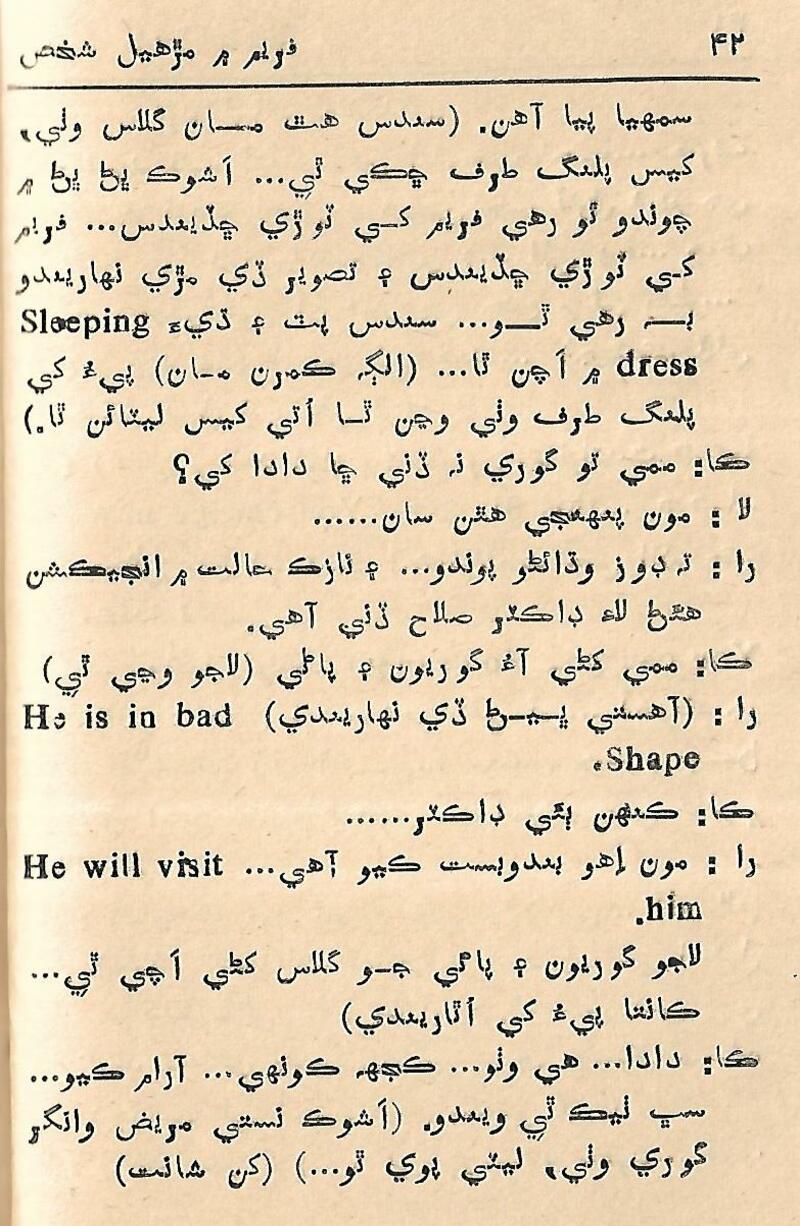 ۴۲
فريم ۾ مڙهيل شخص
سمهيا پيا آهن. (سندس هٿ مــان گلاس وٺي،
کيس پلنگ طرف ڇڪي ٿي... اَشوڪ ڀڻ ڀڻ ۾
چوندو ٿو رهي فريم کــي ٽوڙي ڇڏيندس... فريم
کــي ٽوڙي ڇڏيندس ۽ تصوير ڏي مڙي نهاريندو
بــه رهي ٿــو... سندس پٽ ۽ ڌيءَ Sleeping
dress ۾ اَچن ٿا... (الڳ ڪمرن مـان) پيءُ کي
پلنگ طرف وٺي وڃن ٿــا اُتي کيس ليٽائن ٿا.)
ڪا: ممي تو گوري نہ ڏني ڇا دادا کي؟
لا : مون پنهنجي هٿن سان......
را : تہ ڊوز وڌائڻو پوندو... ۽ نازڪ حالت ۾ انجيڪشن
هڻڻ لاءِ ڊاڪٽر صلاح ڏني آهي.
ڪا: ممي کڻي آءُ گوريون ۽ پاڻي (لاجو وڃي ٿي)
را : (آهستي ڀــيــڻ ڏي نهاريندي) He is in bad
Shape.
ڪا: ڪنهن ٻئي ڊاڪٽر......
را : مون اِهو بندوبست ڪيو آهي... He will visit
him.
لاجو گوريون ۽ پاڻي جـو گلاس کڻي اَچي ٿي...
ڪانتا پيءُ کي اُٿاريندي)
ڪا: دادا... هي وٺو... ڪجهہ ڪونهي... آرام ڪيو...
سڀ ٺيڪ ٿي ويندو. (اَشوڪ نستي مريض وانگر
گوري وٺي، ليٽي پوي ٿو...) (کن شانت)